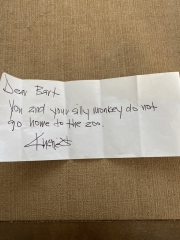 Dear Bart
You and your silly monkey do not
go home to the zoo.